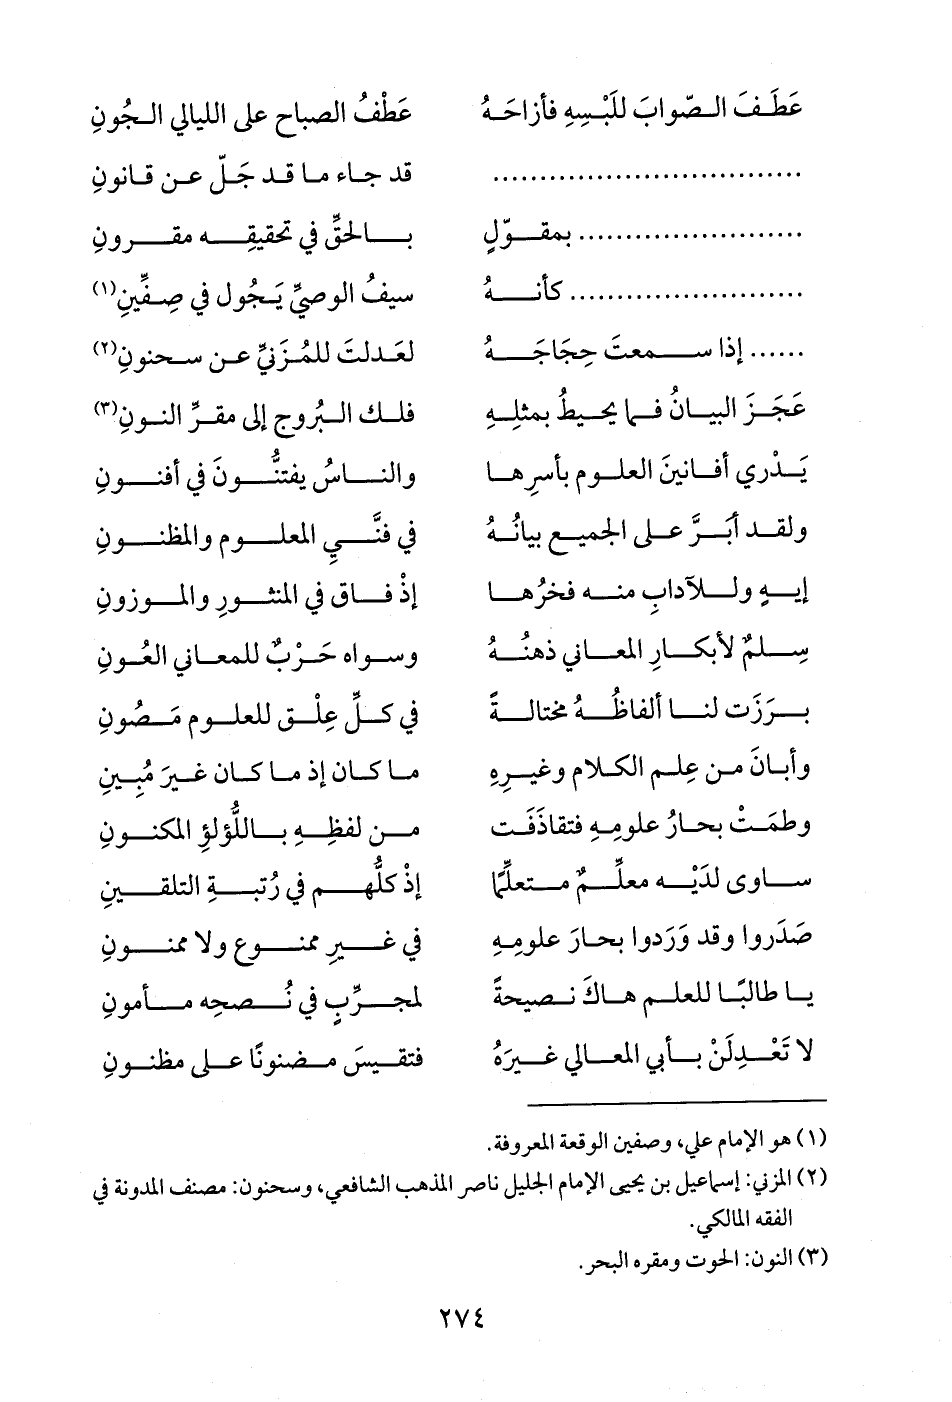 عَطَفَ الصّوابَ للَبْسِهِ فأزاحَهُ عَطْفُ الصباحِ على الليالي الجُونِ
................................ قد جاء ما قد جَلّ عن قانونِ
........................ بمقوّلٍ بالحقِّ في تحقيقِه مقرونِ
........................ كأنهُ سيفُ الوصيِّ يَجُول في صِفِّينِ(١)
...... إذا سمعتَ حِجَاجَهُ لعَدلتَ للمُزَنيِّ عن سحنونِ(٢)
عَجَزَ البيانُ فما يحيطُ بمثلِهِ فلك البُروج إلى مقرِّ النونِ(٣)
يَدْري أفانينَ العلوم بأسرِها والناسُ يفتنُّونَ في أفنونِ
ولقد أبَرَّ على الجميع بيانُهُ في فنَّيِ المعلوم والمظنونِ
إيهٍ وللآدابِ منه فخرُها إذْ فاق في المنثورِ والموزونِ
سِلمٌ لأبكارِ المعاني ذهنُهُ وسواه حَرْبٌ للمعاني العُونِ
برَزَت لنا ألفاظُهُ مختالةً في كلِّ عِلْق للعلوم مَصُونِ
وأبانَ من عِلم الكلام وغيرِهِ ما كان إذ ما كان غيرَ مُبِينِ
وطمَتْ بحارُ علومِهِ فتقاذَفَت من لفظِهِ باللُّؤلؤِ المكنونِ
ساوى لدَيْه معلِّمٌ متعلِّمًا إذْ كلُّهم في رُتبةِ التلقينِ
صَدَروا وقد وَرَدوا بحارَ علومِهِ في غيرِ ممنوع ولا ممنونِ
يا طالبًا للعلم هاكَ نصيحةً لمجرِّبٍ في نُصحِه مأمونِ
لا تَعْدِلَنْ بأبي المعالي غيرَهُ فتقيسَ مضنونًا على مظنونِ
(١) هو الإمام علي، وصفين الوقعة المعروفة.
(٢) المزني: إسماعيل بن يحيى الإمام الجليل ناصر المذهب الشافعي، وسحنون: مصنف المدونة في
الفقه المالكي.
(٣) النون: الحوت ومقره البحر.
٢٧٤